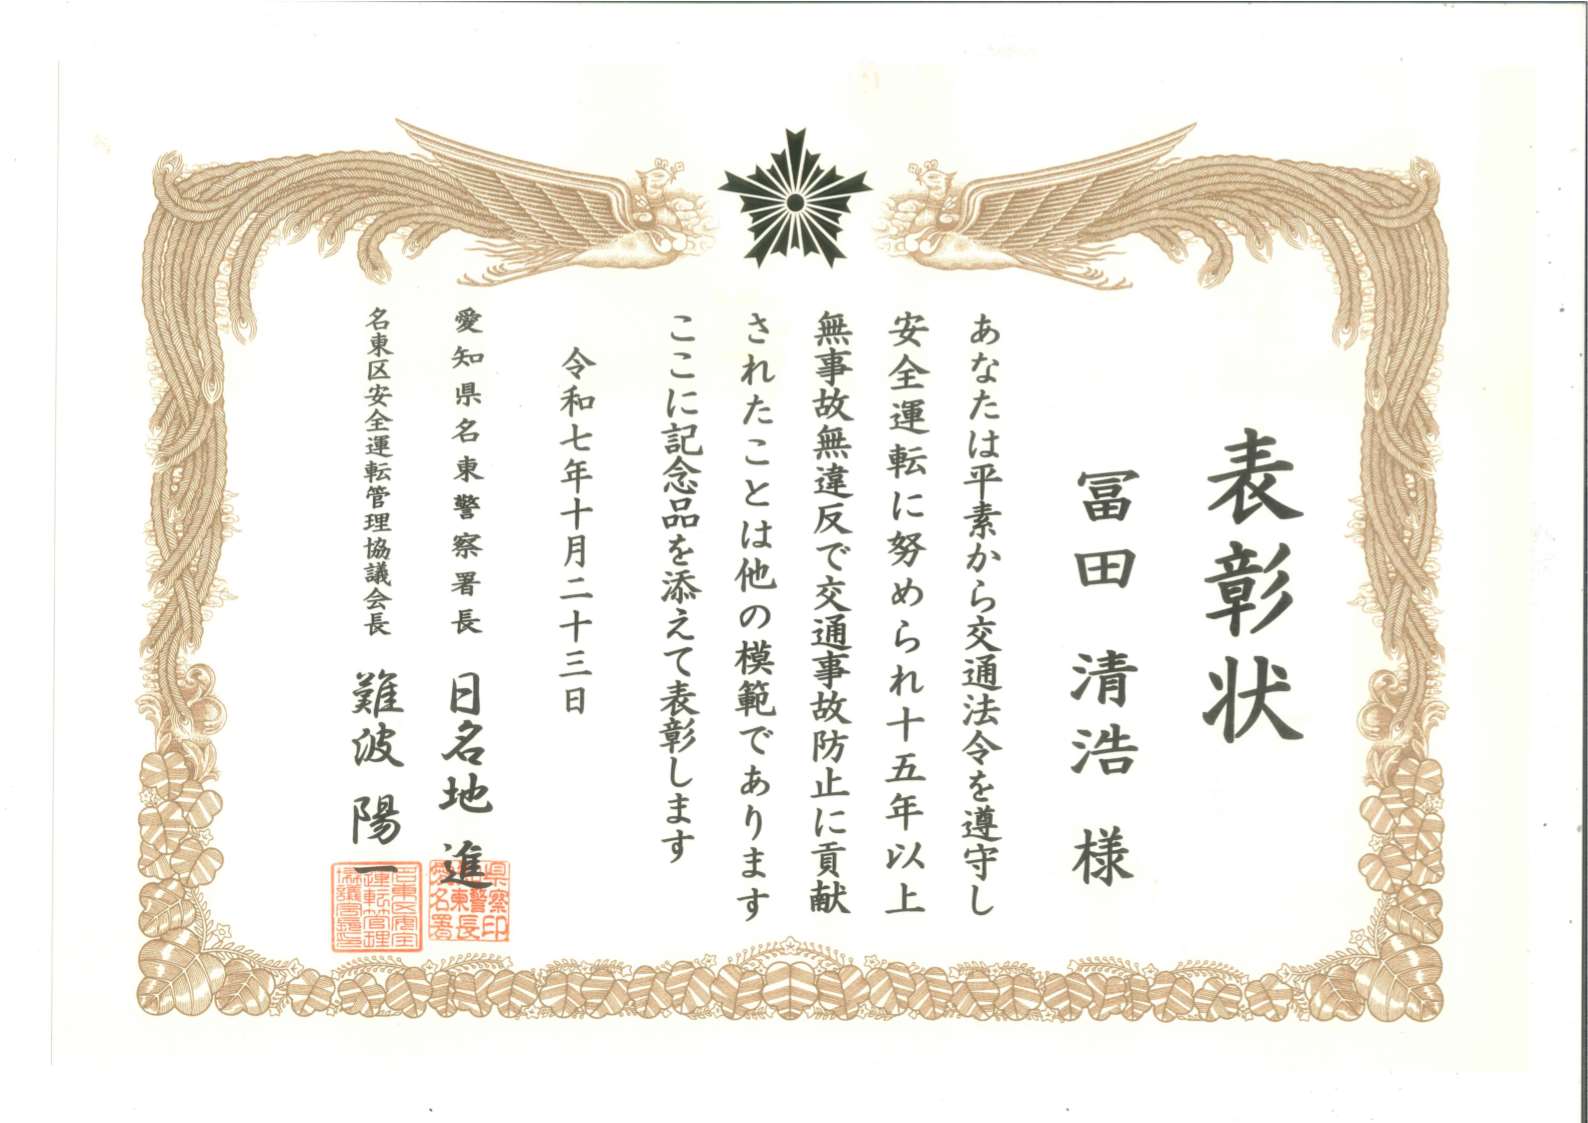 表彰状
冨田 清浩 様
あなたは平素から交通法令を遵守し
安全運転に努められ十五年以上
無事故無違反で交通事故防止に貢献
されたことは他の模範であります
ここに記念品を添えて表彰します
令和七年十月二十三日
愛知県名東警察署長 日名地 進
名東区安全運転管理協議会長 難波 陽一